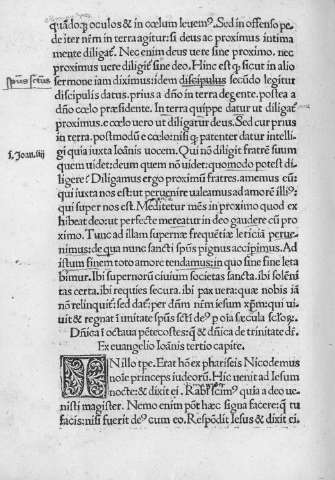 quādoq; oculos & in cœlum leuemꝰ. Sed in offenso pe-
de iter nr̄m in terra agitur: si deus ac proximus intima
mente diligat᷑. Nec enim deus vere sine proximo. nec
proximus vere diligit᷑ sine deo. Hinc est ꝙ sicut in alio
spūs sctūs
sermone iam diximus: idem discipulis secūdo legitur
discipulis datus. prius a dn̄o in terra degente. postea a
dn̄o cœlo præsidente. In terra quippe datur ut diligat᷑
proximus. e cœlo vero ut diligatur deus. Sed cur prius
in terra. postmodū e cœlo: nisi ꝙ patenter datur intelli-
i. Joan. iiij
gi quia iuxta Ioānis uocem. Qui nō diligit fratrē suum
quem uidet: deum quem nō uidet: quomodo potest di-
ligere? Diligamus ergo proximū fratres. amemus eūꝫ
qui iuxta nos est: ut peruenire ualeamus ad amorē illiꝰ:
qui super nos est. Meditetur mēs in proximo quod ex
hibeat deo: ut perfecte mereatur in deo gaudere cū pro
ximo. Tunc ad illam supernæ frequētiæ leticiā perue-
nimus: de qua nunc sancti spūs pignus accipimus. Ad
istum finem toto amore tendamus: in quo sine fine læta
bimur. Ibi supernorū ciuium societas sancta. ibi solēni
tas certa. ibi requies secura. ibi pax uera: quæ nobis iā
nō relinquit᷑: sed dat᷑: per dn̄m nr̄m iesum xp̄m: qui ui-
uit & regnat ī unitate spūs sctī dē p oīa sæcula sclorꝫ.
Dn̄ica ī octaua pētecostes: ꝙ & dn̄ica de trinitate dr̄.
Ex euangelio Ioānis tertio capite.
IN illo tpe. Erat hō ex phariseis Nicodemus
noīe princeps iudeorū. Hic uenit ad Iesum
nocte: & dixit ei. Rabi scimꝰ quia a deo ue-
nisti magister. Nemo enim pōt hæc signa facere: ꝙ tu
facis: nisi fuerit dēꝰ cum eo. Respōdit Iesus & dixit ei.